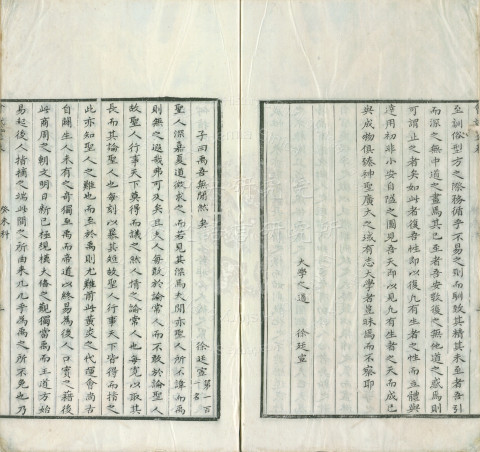 至訓俗型方之際務循乎不易之則而馴致其精其未至者吾引
而深之無中道之畫焉其已至者吾安敦後之無他道之惑焉則
可謂止之者矣如此者復吾性即以復凡有生者之性而立體與
達用初非小安自隘之圖見吾天即以見凡有生者之天而成己
與成物俱臻神聖廣大之域有志大學者豈昧焉而不察耶
大學之道 徐廷宣
子曰禹吾無間然矣
徐廷宣 第一百一名
聖人深嘉夏道微求之而若見其深焉夫間亦聖人所不諱而禹
則無之過我弗可及矣且夫人每敢於論常人而不敢於論聖人
故聖人行事天下莫得而議之然人情之論常人也每寬以取其
長而其論聖人也每刻以暴其短故聖人行事天下皆得而指之
此亦知聖人之難也而至於禹則尤難前此黃炎之代運會尚古
自開生人未有之奇獨至禹而帝道以終易為後人口實之藉後
此商周之朝文明日新已極規模大備之觀獨當禹而王道方始
易起後人指摘之端此間之所由來凡凡乎為禹之所不免也乃
癸未科